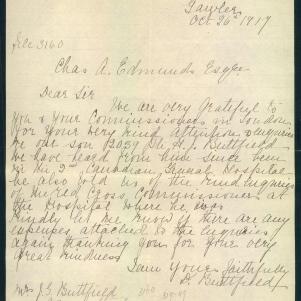 Gawler
Oct 26th 1917
File 3160
Chas A. Edmunds Esqre
Dear Sir
We are very grateful to
you & your Commissioners in London
for your very kind attention & enquiries
re our son Pte H. J. Buttfield
We have heard from him since been
in the 2nd Canadian General Hospital
he also told us of the kind enquiries
of the Red Cross Commissioner at
the Hospital where he was
Kindly let me know if there are any
expenses attached to the enquiries
again thanking you for your very
great kindness
I am Yours faithfully
Buttfield
Mrs J. G. Buttfield